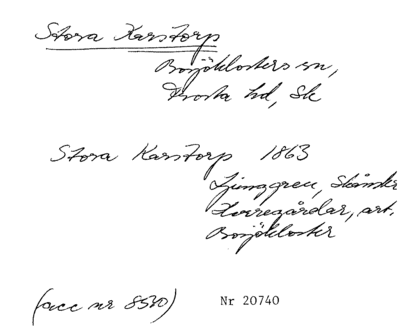 Stora Karstorp
Bosjöklosters sn,
Frosta hd, Sk
Stora Karstorp 1863
Ljunggren, Skånska
Herregårdar, art.
Bosjökloster
(acc nr 8530) Nr 20740